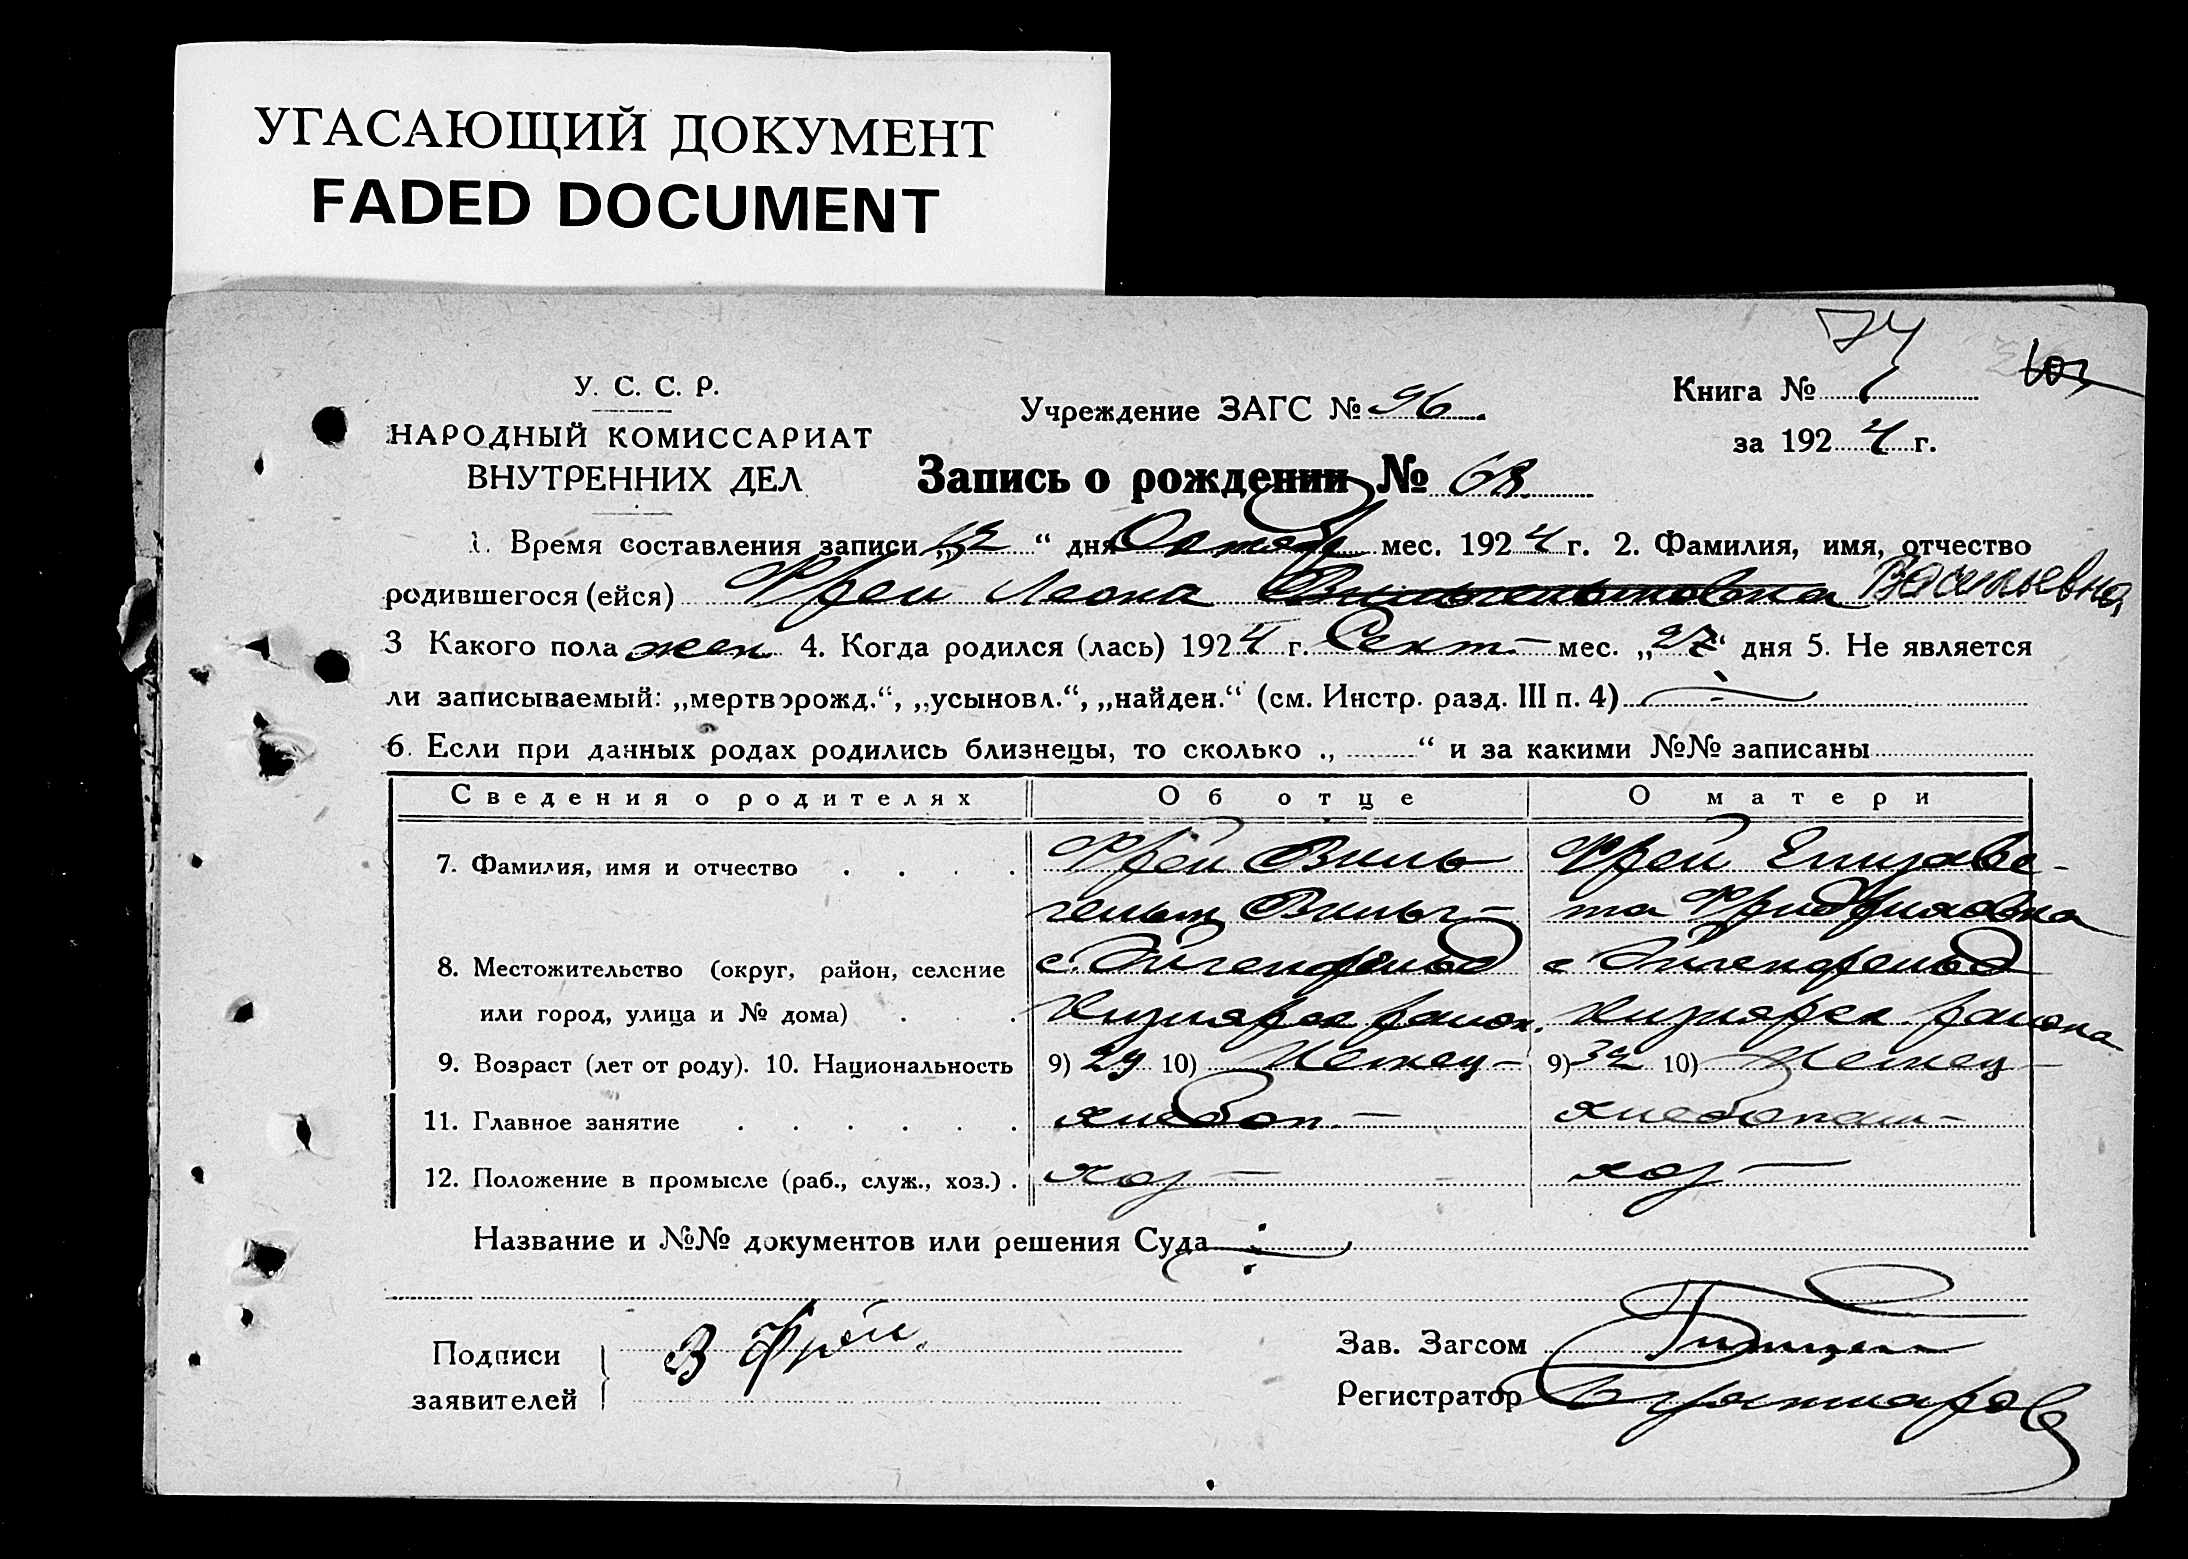 УГАСАЮЩИЙ ДОКУМЕНТ
FADED DOCUMENT
74
103
У. С. С. Р.
НАРОДНЫЙ КОМИССАРИАТ
ВНУТРЕННИХ ДЕЛ
Учреждение ЗАГС № 96
Книга № 1
за 1924 г.
Запись о рождении № 68
1. Время составления записи „12“ дня Октяб мес. 1924 г. 2. Фамилия, имя, отчество
родившегося (ейся) Фрей Леона Вильгельмовна Васильевна
3 Какого пола жен 4. Когда родился (лась) 1924 г. Сент.- мес. „27“ дня 5. Не является
ли записываемый: „мертворожд.“, „усыновл.“, „найден.“ (см. Инстр. разд. III п. 4)
6. Если при данных родах родились близнецы, то сколько „ “ и за какими №№ записаны
Сведения о родителях Об отце О матери
7. Фамилия, имя и отчество Фрей Виль Фрей Елизаве-
гельм Вильг- та Фридриховна
8. Местожительство (округ, район, селение с. Эйгенфельд с Эйгенфельд
или город, улица и № дома) район. района
9. Возраст (лет от роду). 10. Национальность 9) 29 10) Немец- 9) 32 10) Немец-
11. Главное занятие хлебоп.- хлебопаш-
12. Положение в промысле (раб., служ., хоз.) хоз- хоз-
Название и №№ документов или решения Суда
Подписи В Фрей. Зав. Загсом
заявителей Регистратор